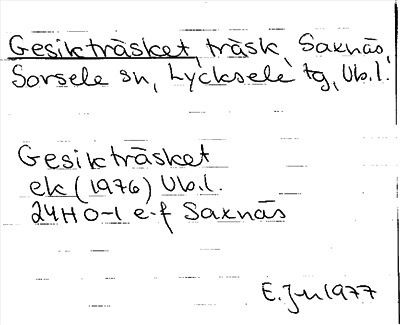 Gesikträsket, träsk, Saxnäs,
Sorsele sn, Lycksele tg, Vb.l.
Gesikträsket
ek (1976) Vb.l.
24H 0-1 e-f Saxnäs
1977